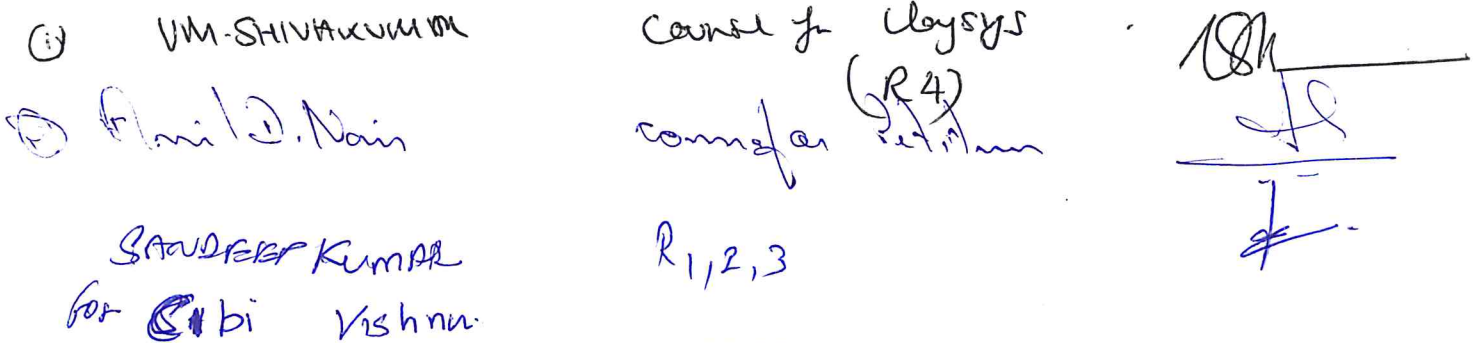 (i) VM-SHIVAKUMAR Counsel for Cloysys
(R4)
Anil D. Nair Counsel for Petitioner
SANDEEP KUMAR R1,2,3
for Sibi Vishnu.